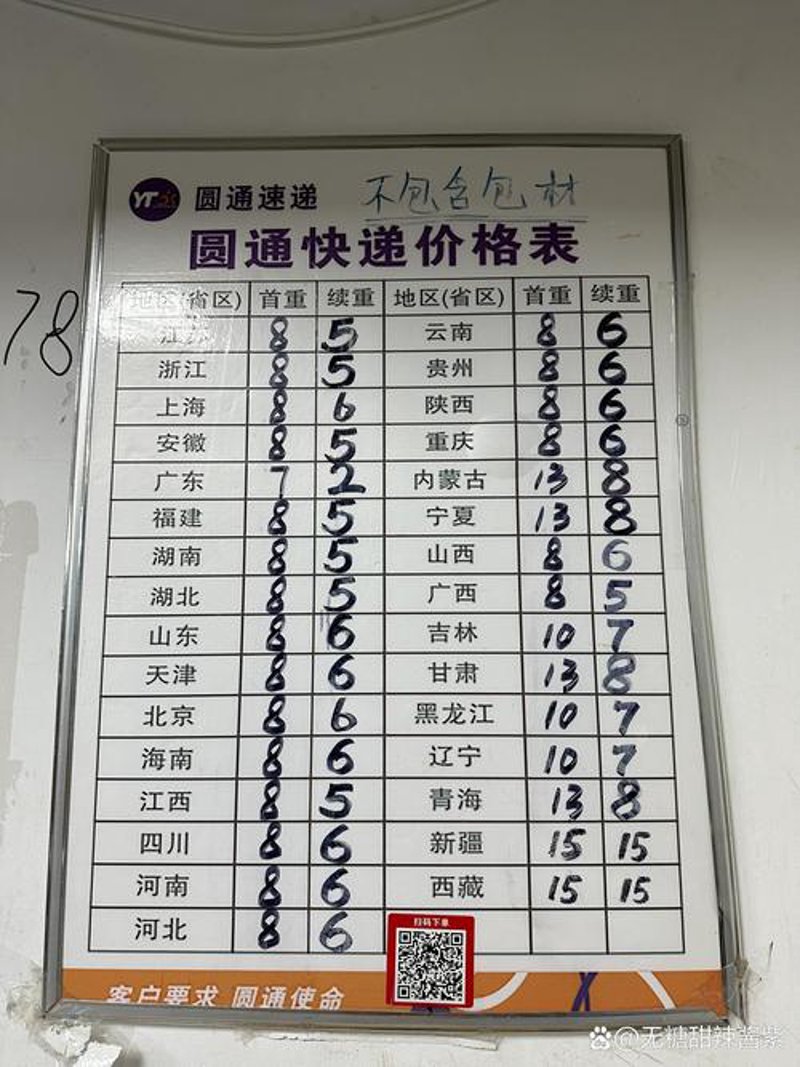 YTO 圆通速递 不包含包材
圆通快递价格表
地区(省区) 首重 续重 地区(省区) 首重 续重
江苏 8 5 云南 8 6
浙江 8 5 贵州 8 6
上海 8 6 陕西 8 6
安徽 8 5 重庆 8 6
广东 7 2 内蒙古 13 8
福建 8 5 宁夏 13 8
湖南 8 5 山西 8 6
湖北 8 5 广西 8 5
山东 8 6 吉林 10 7
天津 8 6 甘肃 13 8
北京 8 6 黑龙江 10 7
海南 8 6 辽宁 10 7
江西 8 5 青海 13 8
四川 8 6 新疆 15 15
河南 8 6 西藏 15 15
河北 8 6
扫码下单
客户要求 圆通使命
78
@无糖甜辣酱紫